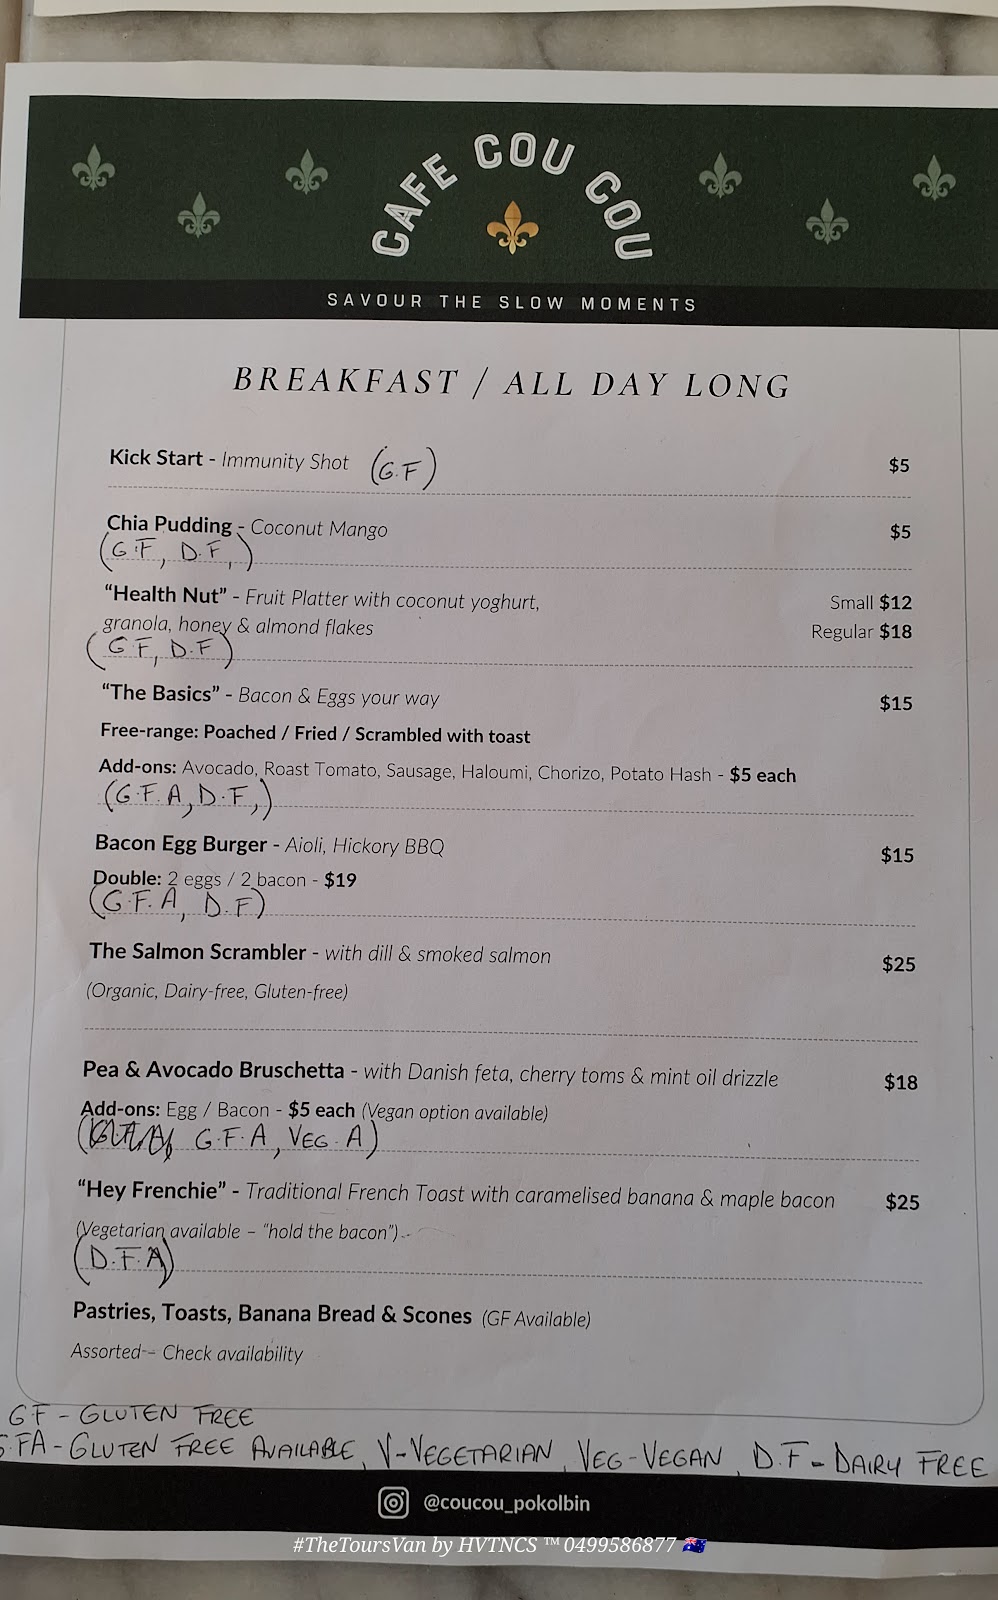 CAFE COU COU
SAVOUR THE SLOW MOMENTS
BREAKFAST / ALL DAY LONG
Kick Start - Immunity Shot (G.F) $5
Chia Pudding - Coconut Mango $5
(G.F, D.F,)
“Health Nut” - Fruit Platter with coconut yoghurt, Small $12
granola, honey & almond flakes Regular $18
(G F, D.F)
“The Basics” - Bacon & Eggs your way $15
Free-range: Poached / Fried / Scrambled with toast
Add-ons: Avocado, Roast Tomato, Sausage, Haloumi, Chorizo, Potato Hash - $5 each
(G.F.A, D.F,)
Bacon Egg Burger - Aioli, Hickory BBQ $15
Double: 2 eggs / 2 bacon - $19
(G.F.A, D.F)
The Salmon Scrambler - with dill & smoked salmon $25
(Organic, Dairy-free, Gluten-free)
Pea & Avocado Bruschetta - with Danish feta, cherry toms & mint oil drizzle $18
Add-ons: Egg / Bacon - $5 each (Vegan option available)
( G.F.A, VEG.A)
“Hey Frenchie” - Traditional French Toast with caramelised banana & maple bacon $25
(Vegetarian available – “hold the bacon”)
(D.F.A)
Pastries, Toasts, Banana Bread & Scones (GF Available)
Assorted – Check availability
GF - GLUTEN FREE
GFA - GLUTEN FREE AVAILABLE, V-VEGETARIAN, VEG-VEGAN, D.F - DAIRY FREE
@coucou_pokolbin
#TheToursVan by HVTNCS ™ 0499586877 🇦🇺